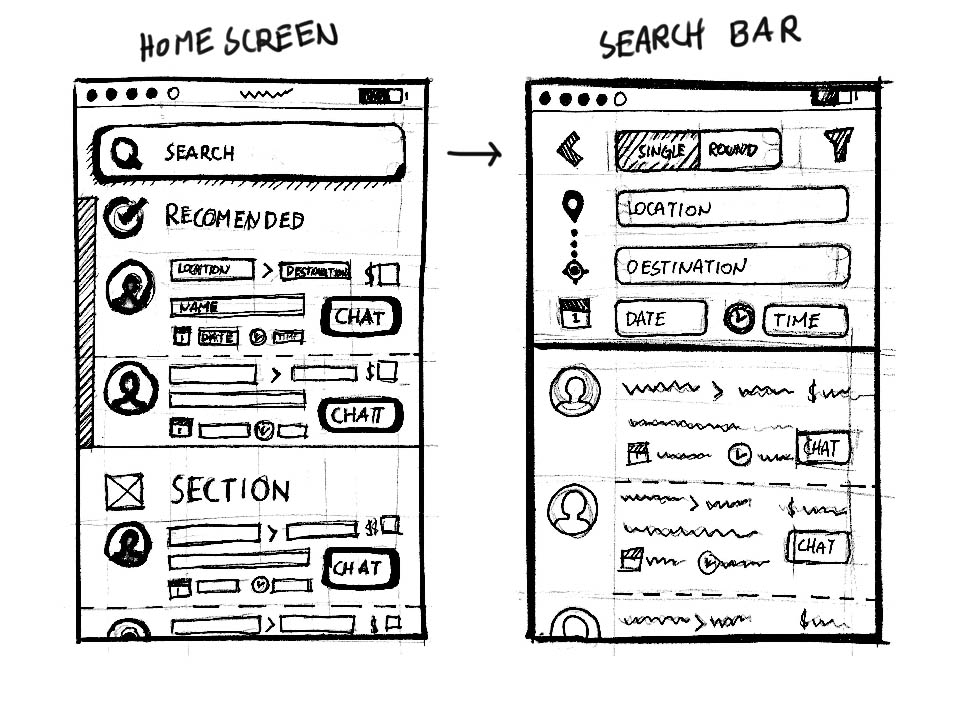 HOME SCREEN
SEARCH
RECOMENDED
LOCATION > DESTINATION $
NAME
CHAT
1 DATE TIME
> $
CHAT
SECTION
> $
CHAT
> $
SEARCH BAR
SINGLE ROUND
LOCATION
DESTINATION
1 DATE TIME
> $
CHAT
> $
CHAT
> $